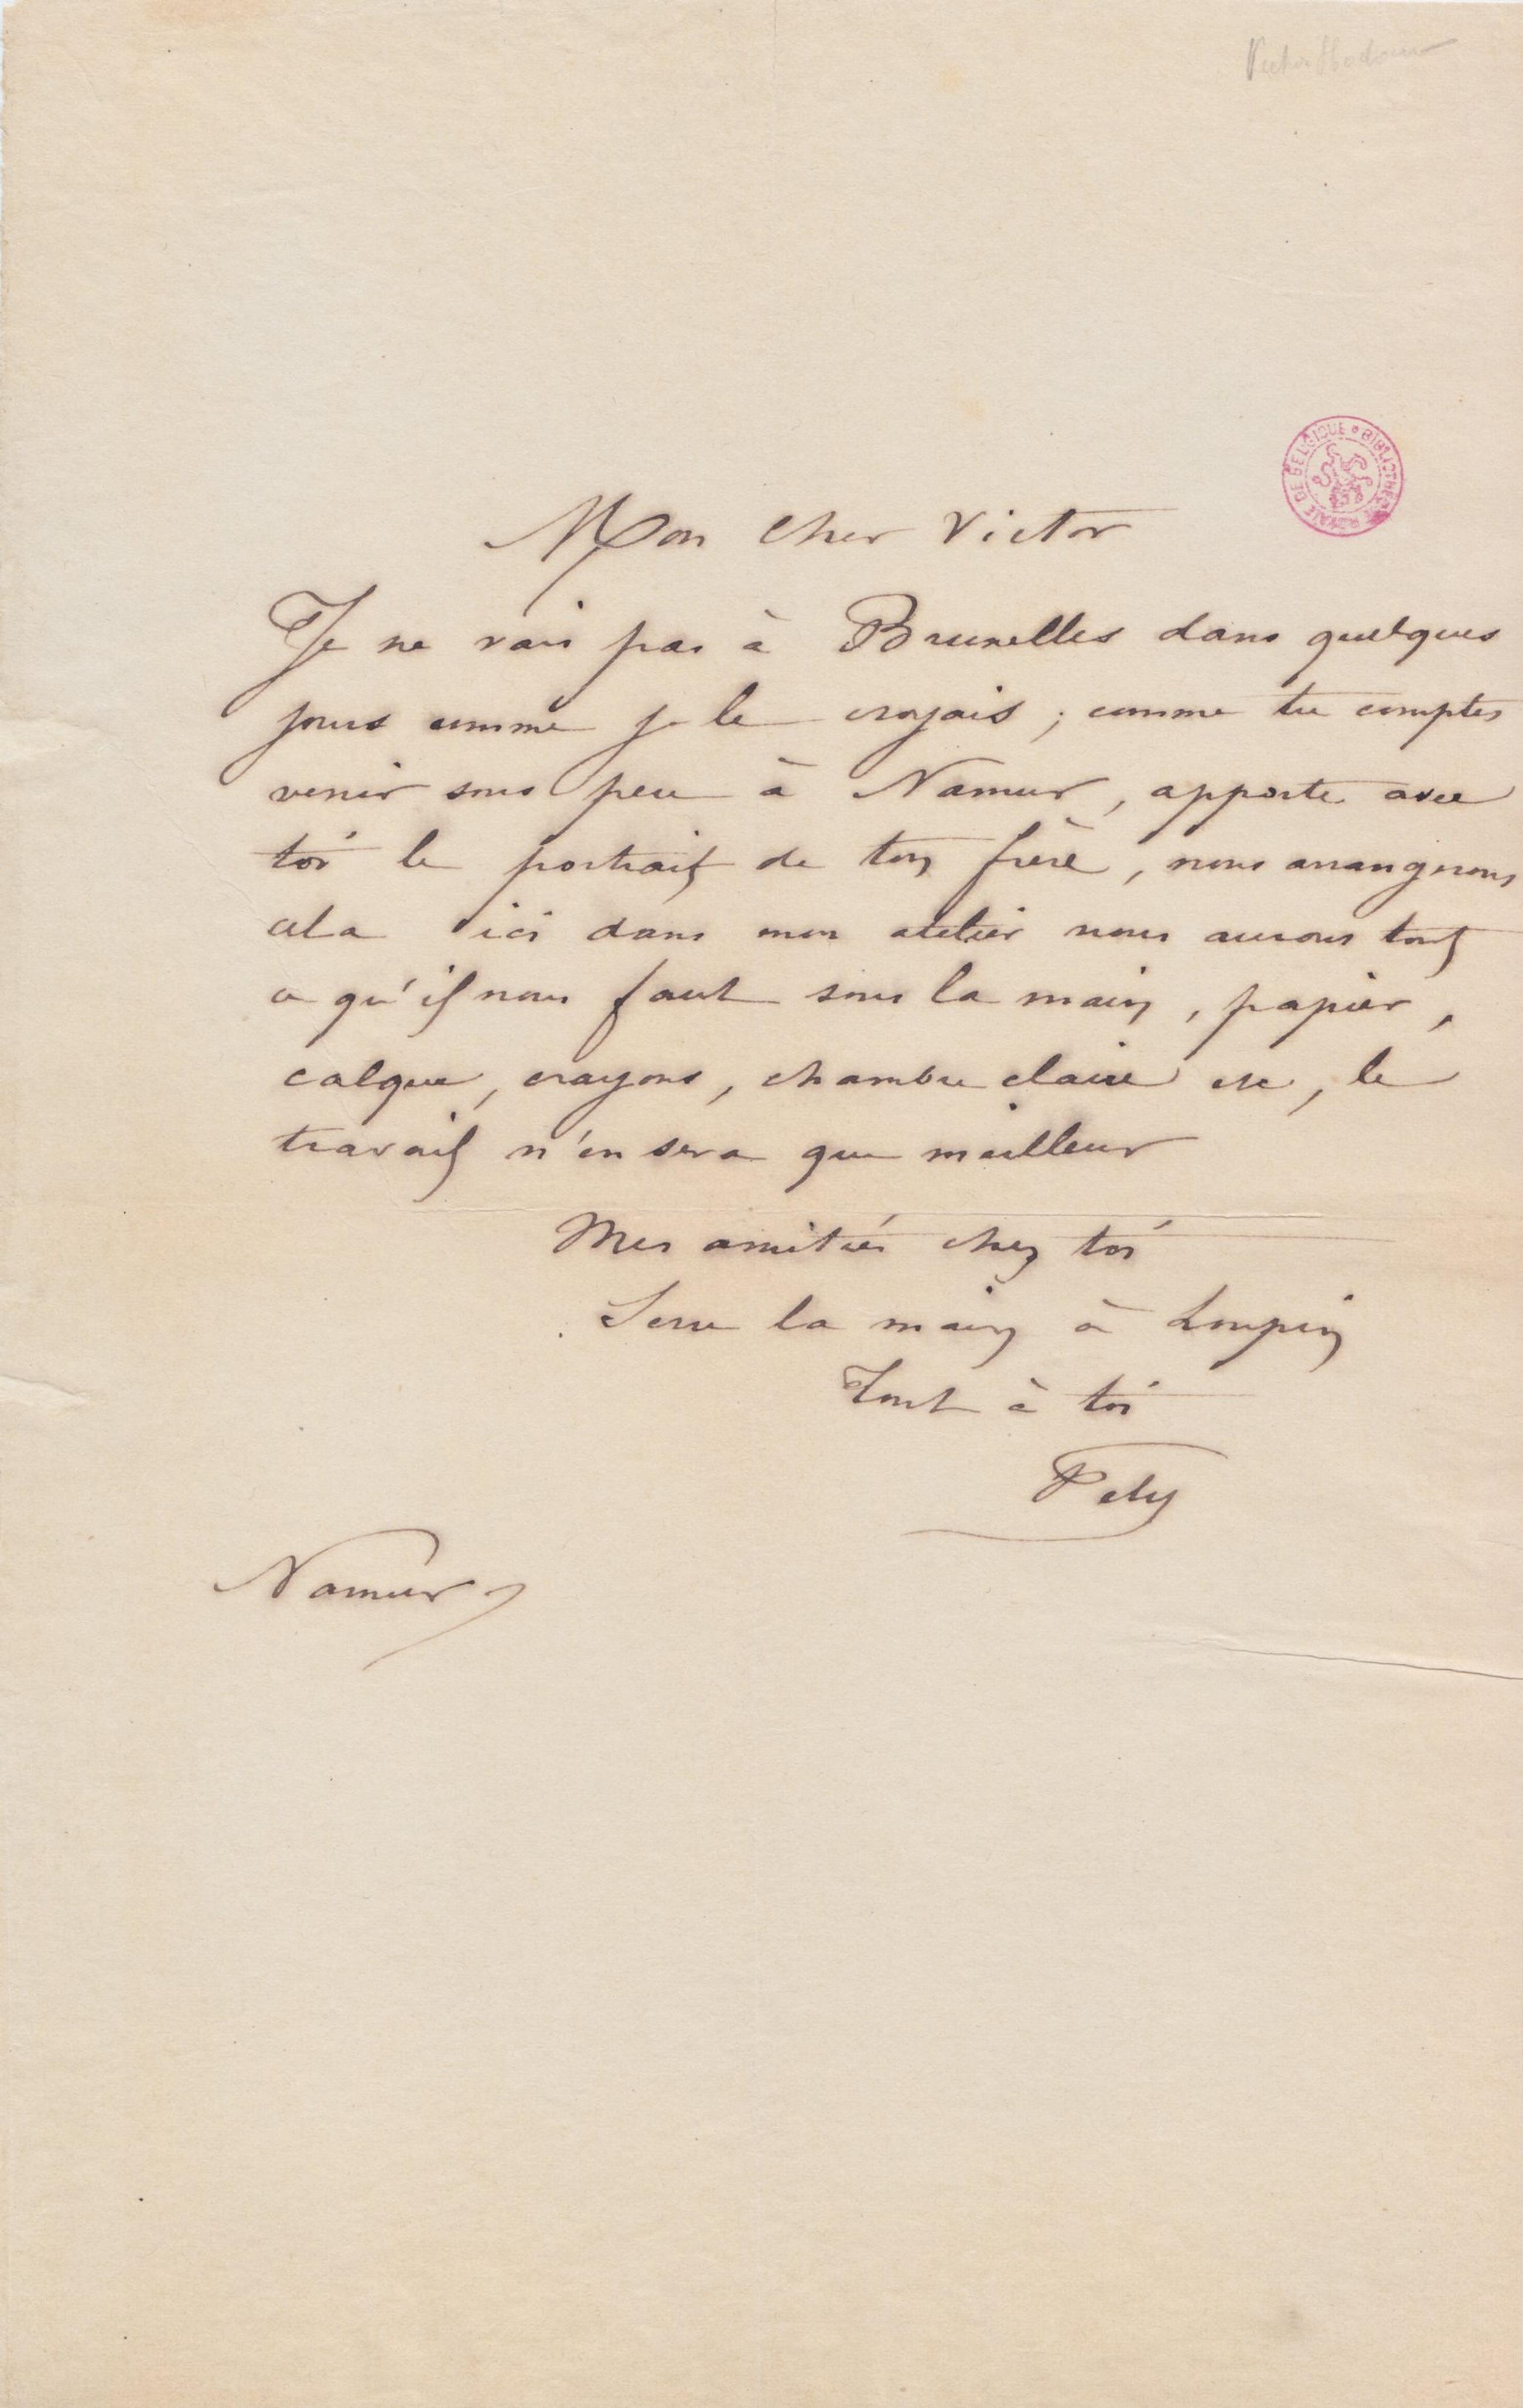 Victor Hedouin
BIBLIOTHÈQUE ROYALE DE BELGIQUE
Mon cher Victor
Je ne vais pas à Bruxelles dans quelques
jours comme je le croyais ; comme tu comptes
venir sous peu à Namur, apporte avec
toi le portrait de ton frère, nous arrangerons
cela ici dans mon atelier nous aurons tout
ce qu'il nous faut sous la main, papier,
calque, crayons, chambre claire etc, le
travail n'en sera que meilleur
Mes amitiés chez toi
Serre la main à Loupin
Tout à toi
Fély
Namur